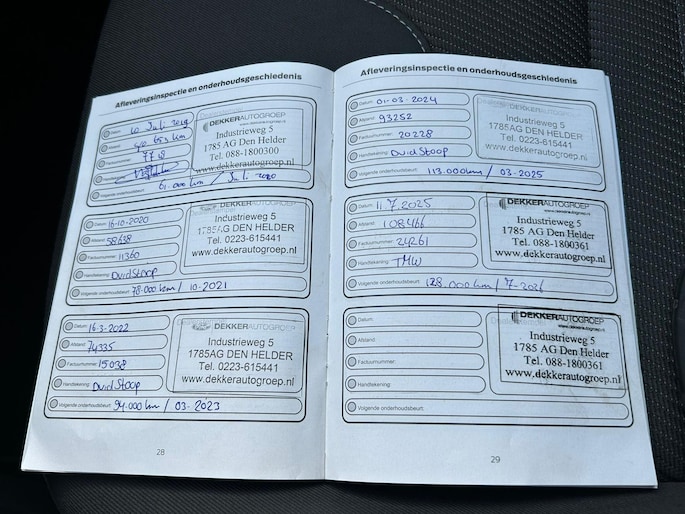 Afleveringsinspectie en onderhoudsgeschiedenis
Datum: 10 Juli 2019
Afstand: km
Factuurnummer:
Handtekening:
Volgende onderhoudsbeurt: 61.000 km / Juli 2020
DEKKERAUTOGROEP
Industrieweg 5
1785AG DEN HELDER
Tel. 088-1800300
www.dekkerautogroep.nl
Datum: 16-10-2020
Afstand: 58638
Factuurnummer: 11360
Handtekening: DvidStoop
Volgende onderhoudsbeurt: 78.000 km / 10-2021
DEKKERAUTOGROEP
Industrieweg 5
1785AG DEN HELDER
Tel. 0223-615441
www.dekkerautogroep.nl
Datum: 16-3-2022
Afstand: 74335
Factuurnummer: 15038
Handtekening: DvidStoop
Volgende onderhoudsbeurt: 94.000 km / 03-2023
DEKKERAUTOGROEP
Industrieweg 5
1785AG DEN HELDER
Tel. 0223-615441
www.dekkerautogroep.nl
28
Afleveringsinspectie en onderhoudsgeschiedenis
Datum: 01-03-2024
Afstand: 93252
Factuurnummer: 20228
Handtekening: DvidStoop
Volgende onderhoudsbeurt: 113.000km / 03-2025
DEKKERAUTOGROEP
Industrieweg 5
1785AG DEN HELDER
Tel. 0223-615441
www.dekkerautogroep.nl
Datum: 11.7.2025
Afstand: 108466
Factuurnummer: 24261
Handtekening: TMW
Volgende onderhoudsbeurt: 128.000 km / 7-2026
DEKKERAUTOGROEP
Industrieweg 5
1785 AG Den Helder
Tel. 088-1800361
www.dekkerautogroep.nl
Datum:
Afstand:
Factuurnummer:
Handtekening:
Volgende onderhoudsbeurt:
DEKKERAUTOGROEP
Industrieweg 5
1785 AG Den Helder
Tel. 088-1800361
www.dekkerautogroep.nl
29